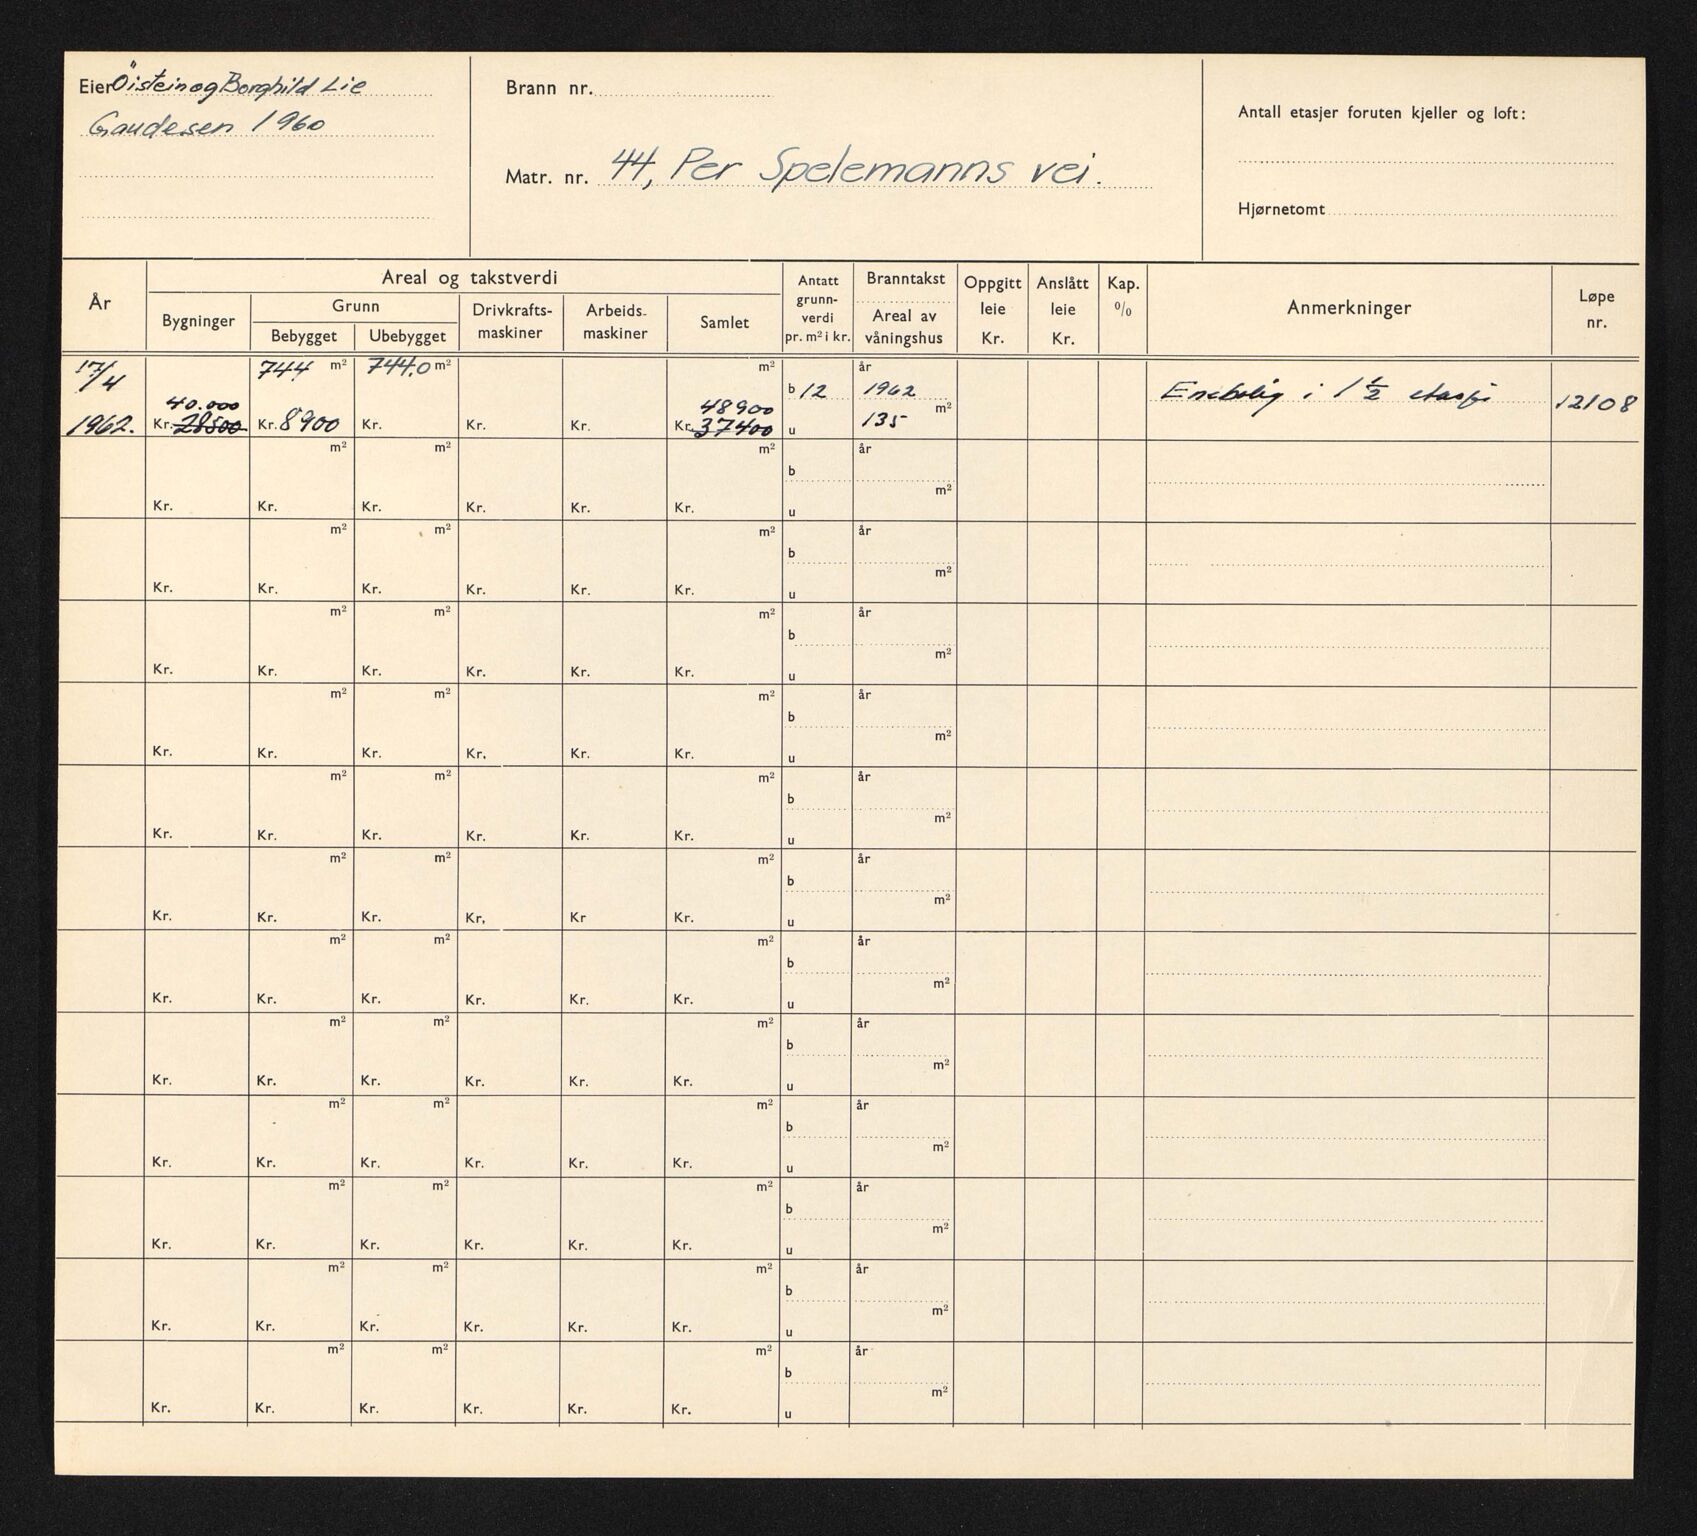 Eier Öistein og Borghild Lie
Gaudesen 1960
Brann nr.
Matr. nr. 44, Per Spelemanns vei.
Antall etasjer foruten kjeller og loft:
Hjørnetomt
År
Areal og takstverdi
Bygninger
Grunn
Bebygget
Ubebygget
Drivkrafts-
maskiner
Arbeids-
maskiner
Samlet
Antatt
grunn-
verdi
pr. m² i kr.
Branntakst
Areal av
våningshus
Oppgitt
leie
Kr.
Anslått
leie
Kr.
Kap.
%
Anmerkninger
Løpe
nr.
17/4
1962.
40.000
Kr. 28500
744 m²
Kr. 8900
744.0 m²
Kr.
Kr.
Kr.
m²
48900
Kr. 37400
b 12
u
år
1962
m²
135
Enebolig i 1 1/2 etasje
12108
m² m² m² b år
m²
Kr. Kr. Kr. Kr. Kr. Kr. u
m² m² m² b år
m²
Kr. Kr. Kr. Kr. Kr. Kr. u
m² m² m² b år
m²
Kr. Kr. Kr. Kr. Kr. Kr. u
m² m² m² b år
m²
Kr. Kr. Kr. Kr. Kr. Kr. u
m² m² m² b år
m²
Kr. Kr. Kr. Kr. Kr. Kr. u
m² m² m² b år
m²
Kr. Kr. Kr. Kr. Kr Kr. u
m² m² m² b år
m²
Kr. Kr. Kr. Kr. Kr. Kr. u
m² m² m² b år
m²
Kr. Kr. Kr. Kr. Kr. Kr. u
m² m² m² b år
m²
Kr. Kr. Kr. Kr. Kr. Kr. u
m² m² m² b år
m²
Kr. Kr. Kr. Kr. Kr. Kr. u
m² m² m² b år
m²
Kr. Kr. Kr. Kr. Kr. Kr. u
m² m² m² b år
m²
Kr. Kr. Kr. Kr. Kr. Kr. u